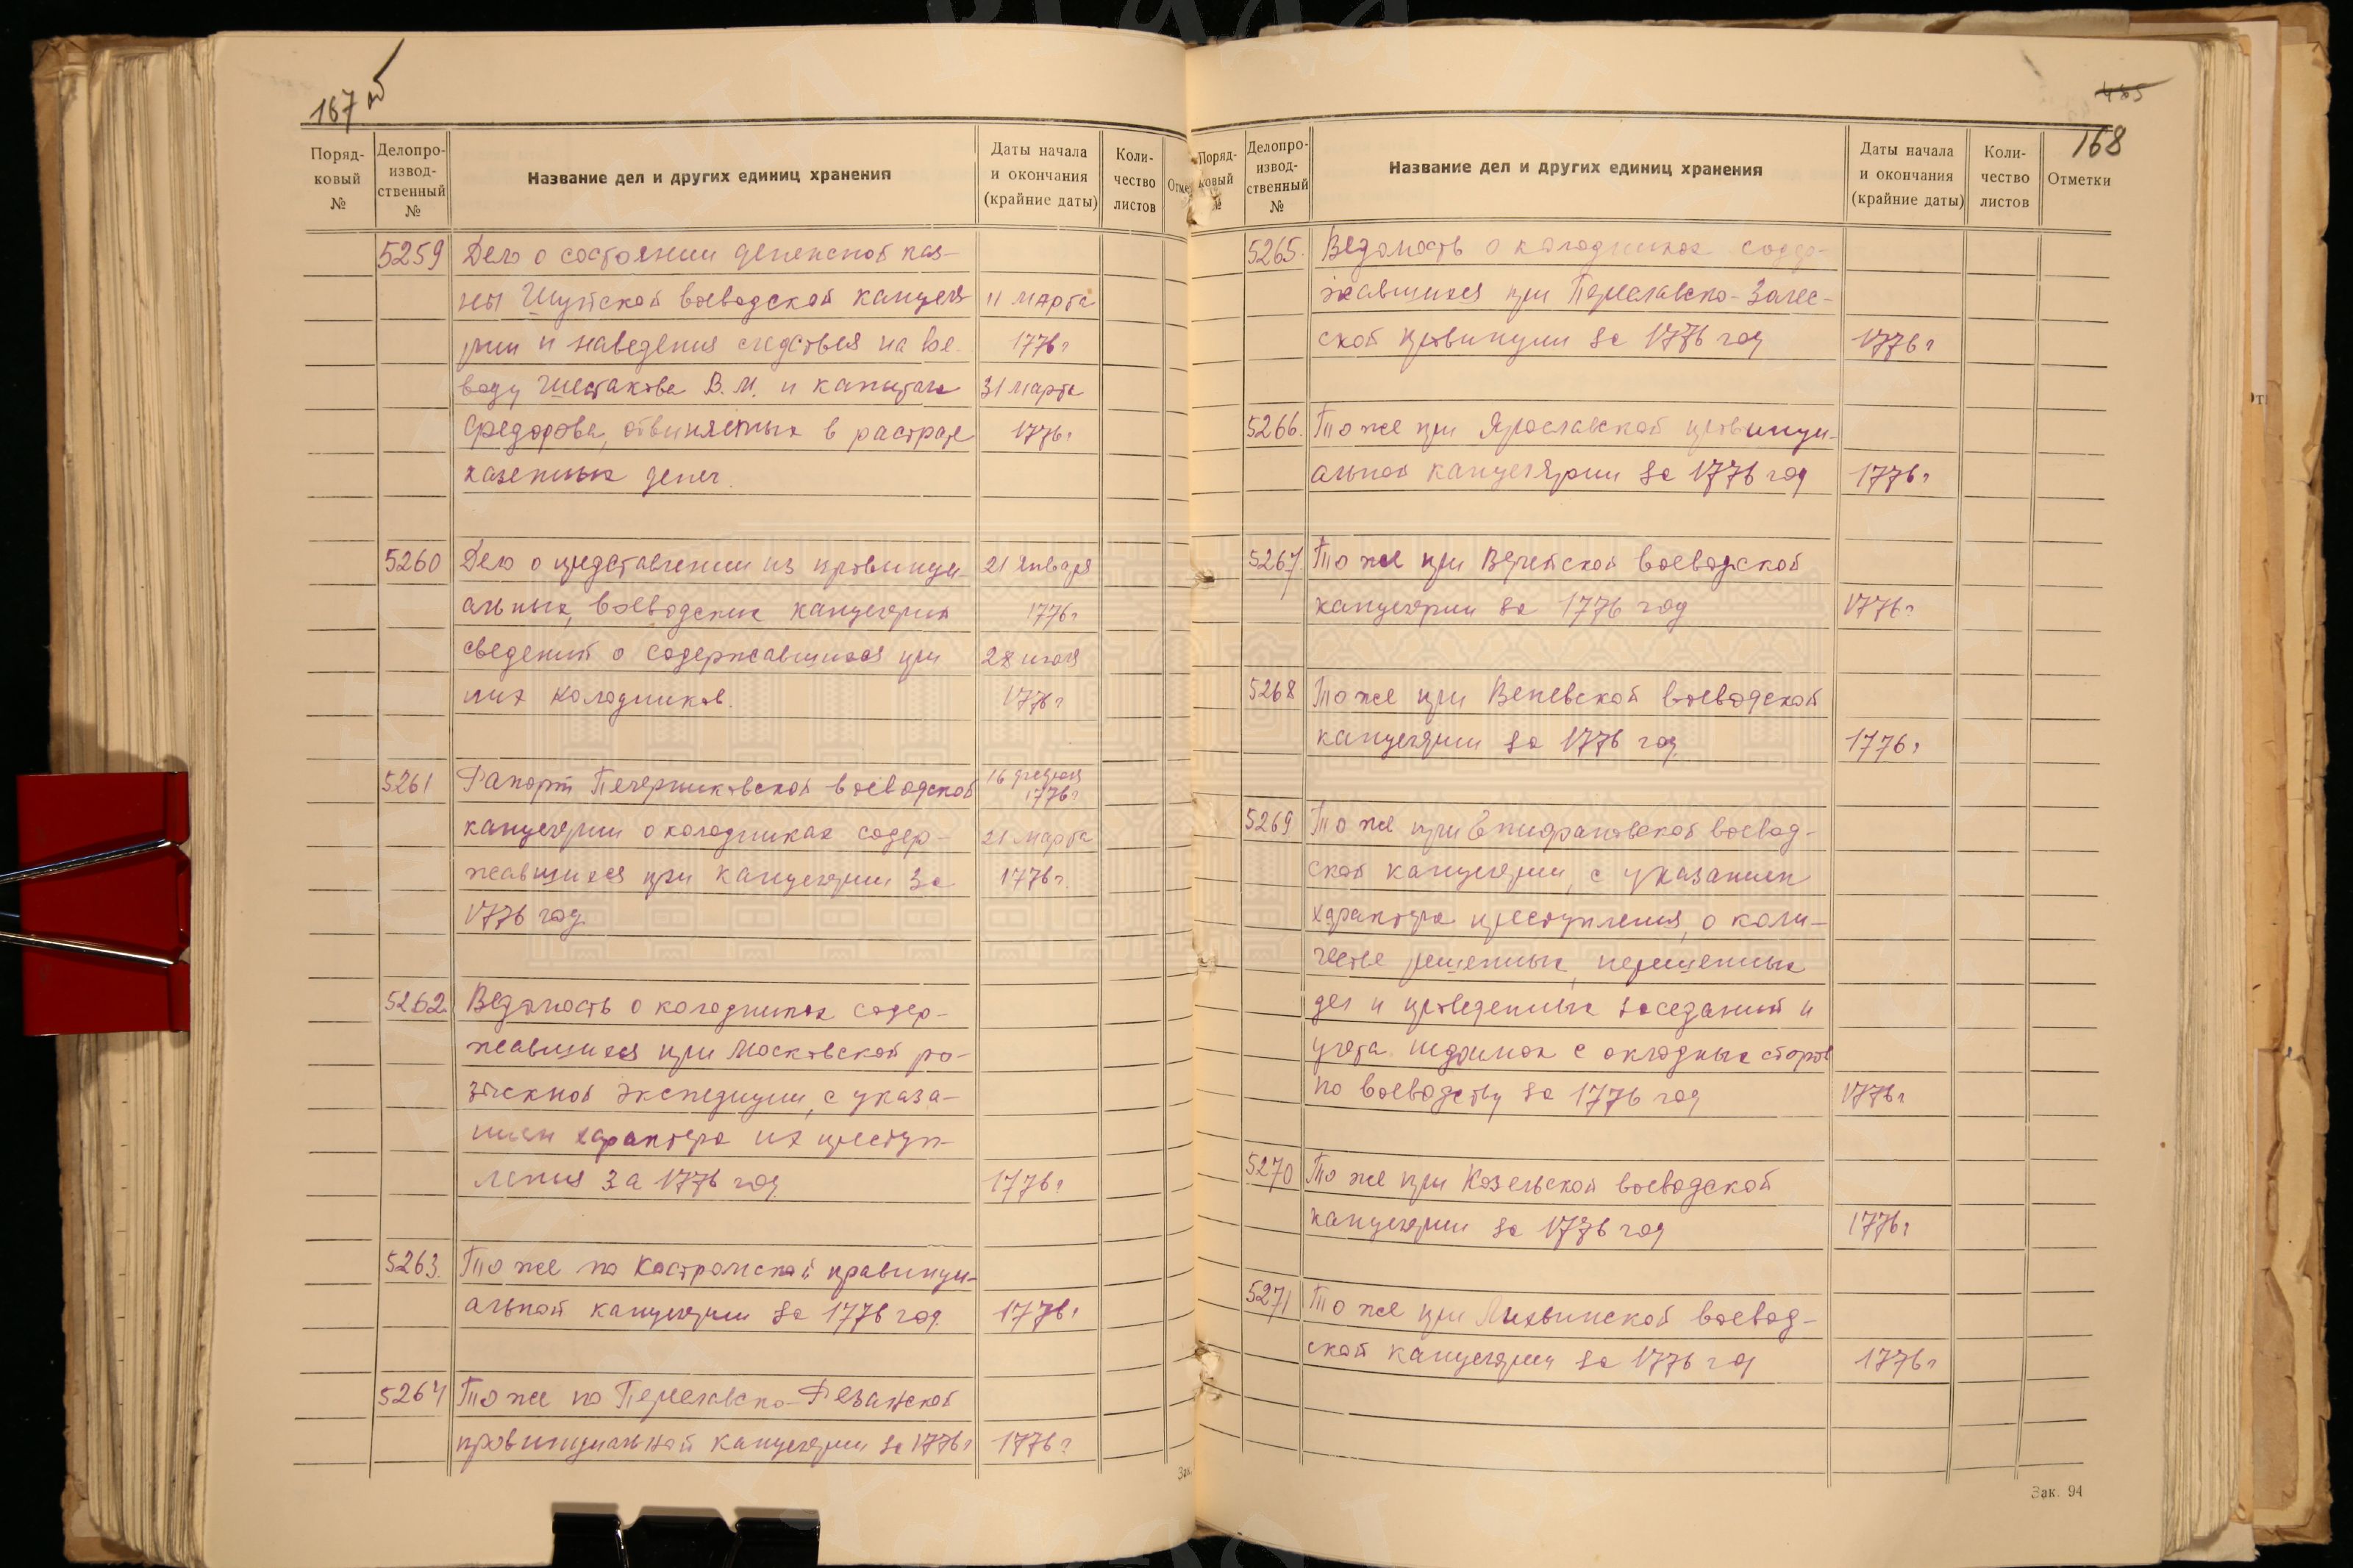 167 об
Поряд-
ковый
№
Делопро-
извод-
ственный
№
Название дел и других единиц хранения
Даты начала
и окончания
(крайние даты)
Коли-
чество
листов
Отме
5259 Дело о состоянии денежной каз-
ны Шуйской воеводской канцеля 11 марта
рии и наведения следствия на вое- 1776 г
воду Шестакова В.М. и капитана 31 марта
Федорова, обвиняемых в растрате 1776 г
казенных денег.
5260 Дело о представлении из провинци- 21 января
альных, воеводских канцелярий 1776 г
сведений о содержавшихся при 28 июля
них колодников. 1776 г
5261 Рапорт Печерниковской воеводской 16 февраля 1776 г
канцелярии о колодниках содер- 21 марта
жавшихся при канцелярии за 1776 г.
1776 год.
5262. Ведомость о колодниках содер-
жавшихся при Московской ро-
зыскной экспедиции, с указа-
нием характера их преступ-
ления за 1776 год 1776 г
5263. То же по Костромской провинци-
альной канцелярии за 1776 год. 1776 г
5264 То же по Переславско-Резанской
провинциальной канцелярии за 1776 г 1776 г
Зак.
485
168
Поряд-
ковый
№
Делопро-
извод-
ственный
№
Название дел и других единиц хранения
Даты начала
и окончания
(крайние даты)
Коли-
чество
листов
Отметки
5265. Ведомость о колодниках содер-
жавшихся при Переславско-Залес-
ской провинции за 1776 год 1776 г
5266. То же при Ярославской провинци-
альной канцелярии за 1776 год 1776 г
5267 То же при Верейской воеводской
канцелярии за 1776 год 1776 г
5268 То же при Веневской воеводской
канцелярии за 1776 год 1776 г
5269 То же при Епифановской воевод-
ской канцелярии, с указанием
характера преступления, о коли-
честве решенных, нерешенных
дел и проведенных заседаний и
учета недоимок с окладных сборов
по воеводству за 1776 год 1776 г
5270 То же при Козельской воеводской
канцелярии за 1776 год 1776 г
5271 То же при Лихвинской воевод-
ской канцелярии за 1776 год 1776 г
Зак. 94